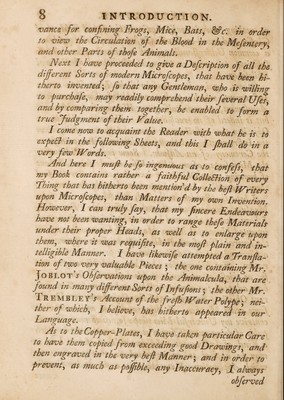 8 INTRODUCTION.
vance for confining Frogs, Mice, Bats, &c. in order
to view the Circulation of the Blood in the Mesentery,
and other Parts of those Animals.
Next I have proceeded to give a Description of all the
different Sorts of modern Microscopes, that have been hi-
therto invented; so that any Gentleman, who is willing
to purchase, may readily comprehend their several Uses,
and by comparing them together, be enabled to form a
true Judgment of their Value.
I come now to acquaint the Reader with what he is to
expect in the following Sheets, and this I shall do in a
very few Words.
And here I must be so ingenuous as to confess, that
my Book contains rather a faithful Collection of, every
Thing that has hitherto been mention'd by the best Writers
upon Microscopes, than Matters of my own Invention.
However, I can truly say, that my sincere Endeavours
have not been wanting, in order to range these Materials
under their proper Heads, as well as to enlarge upon
them, where it was requisite, in the most plain and in-
telligible Manner. I have likewise attempted a Transla-
tion of two very valuable Pieces; the one containing Mr.
JOBLOT's Observations upon the Animalcula, that are
found in many different Sorts of Infusions; the other Mr.
TREMBLEY's Account of the fresh Water Polype; nei-
ther of which, I believe, has hitherto appeared in our
Language.
As to the Copper-Plates, I have taken particular Care
to have them copied from exceeding good Drawings, and
then engraved in the very best Manner; and in order to
prevent, as much as possible, any Inaccuracy, I always
observed